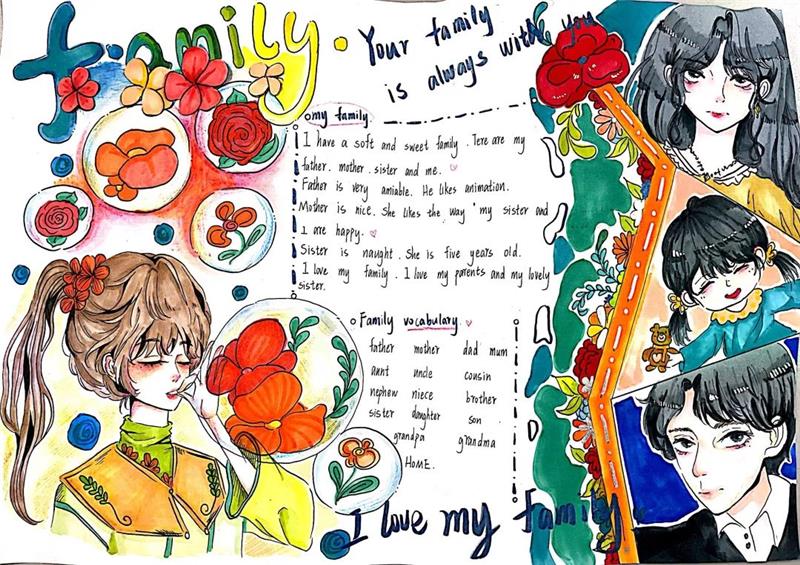 family.
Your family
is always with you
my family
I have a soft and sweet family. Tere are my
father. mother. sister and me.
Father is very amiable. He likes animation.
Mother is nice. She likes the way my sister and
I are happy.
Sister is naught. She is five years old.
I love my family. I love my parents and my lovely
sister.
Family vocabulary
father mother dad mum
aunt uncle cousin
nephew niece brother
sister daughter son
grandpa grandma
HOME.
I love my family